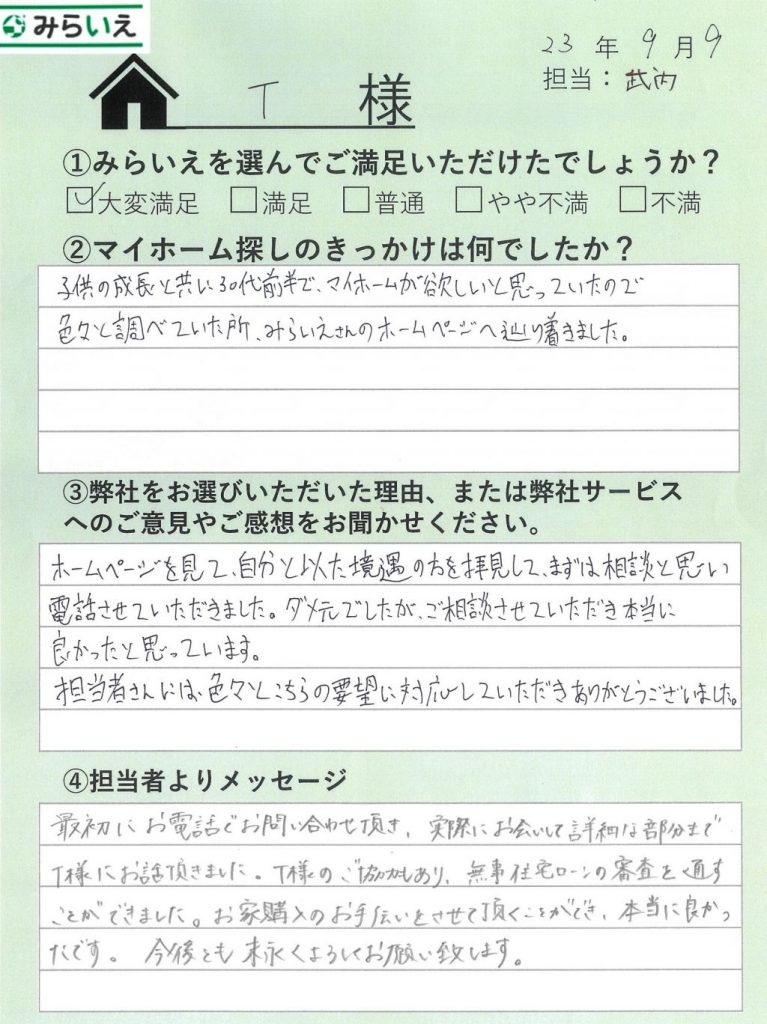 みらいえ
23 年 9 月 9
担当：武内
T 様
①みらいえを選んでご満足いただけたでしょうか？
☑大変満足 □満足 □普通 □やや不満 □不満
②マイホーム探しのきっかけは何でしたか？
子供の成長と共に30代前半で、マイホームが欲しいと思っていたので
色々と調べていた所、みらいえさんのホームページへ辿り着きました。
③弊社をお選びいただいた理由、または弊社サービス
へのご意見やご感想をお聞かせください。
ホームページを見て、自分と似た境遇の方を拝見して、まずは相談と思い
電話させていただきました。ダメ元でしたが、ご相談させていただき本当に
良かったと思っています。
担当者さんには、色々とこちらの要望に対応していただきありがとうございました。
④担当者よりメッセージ
最初にお電話でお問い合わせ頂き、実際にお会いして詳細な部分まで
T様にお話頂きました。T様のご協力もあり、無事住宅ローンの審査を通す
ことができました。お家購入のお手伝いをさせて頂くことができ、本当に良かっ
たです。 今後とも末永くよろしくお願い致します。